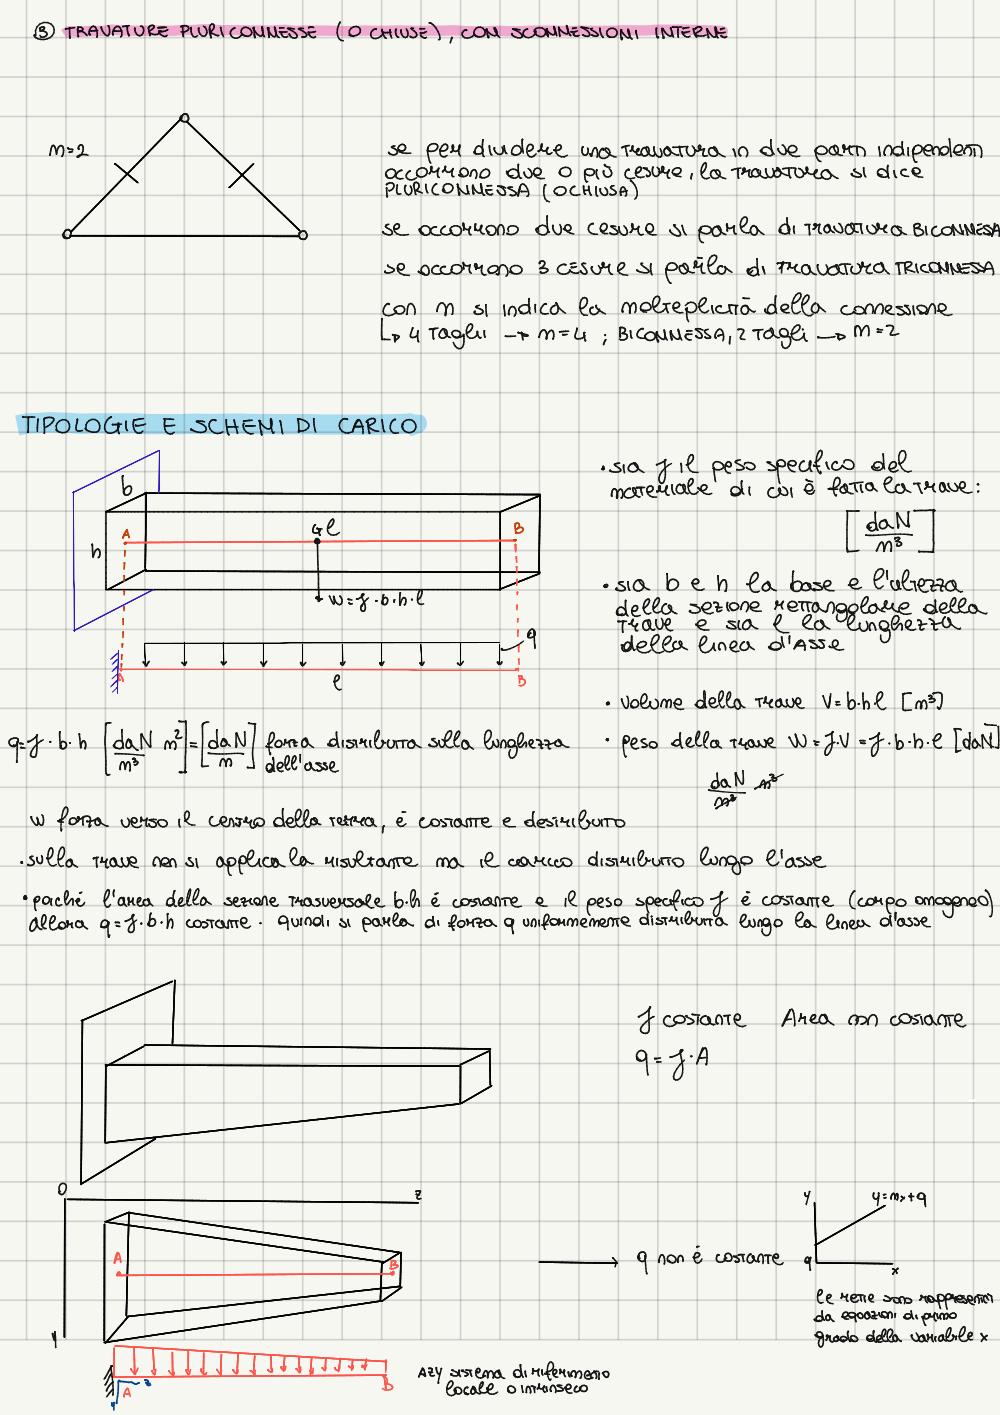 ③ TRAVATURE PLURICONNESSE (O CHIUSE), CON SCONNESSIONI INTERNE
m=2
se per dividere una travatura in due parti indipendenti
occorrono due o più cesure, la travatura si dice
PLURICONNESSA (O CHIUSA)
se occorrono due cesure si parla di travatura BICONNESSA
se occorrono 3 cesure si parla di travatura TRICONNESSA
con m si indica la molteplicità della connessione
↳ 4 Tagli → m=4 ; BICONNESSA, 2 Tagli → m=2
TIPOLOGIE E SCHEMI DI CARICO
b
A
G
l
B
h
W=γ·b·h·l
q
A
l
B
• sia γ il peso specifico del
materiale di cui è fatta la trave:
[daN/m³]
• sia b e h la base e l'altezza
della sezione rettangolare della
trave e sia l la lunghezza
della linea d'Asse
• volume della trave V=b·h·l [m³]
q=γ·b·h [daN/m³ m²]=[daN/m] forza distribuita sulla lunghezza
dell'asse
• peso della trave W=γ·V=γ·b·h·l [daN]
daN/m³ m³
W forza verso il centro della terra, è costante e desitribuito
• sulla trave non si applica la risultante ma il carico distribuito lungo l'asse
• poiché l'area della sezione trasversale b·h é costante e il peso specifico γ è costante (corpo omogeneo)
allora q=γ·b·h costante. quindi si parla di forza q uniformemente distribuita lungo la linea d'asse
γ costante Area non costante
q=γ·A
O
z
y
A
B
→ q non è costante
y
y=mx+q
q
x
le rette sono rappresentn
da equazioni di primo
grado della variabile x
A
z
y
B
Azy sistema di riferimento
locale o intrinseco